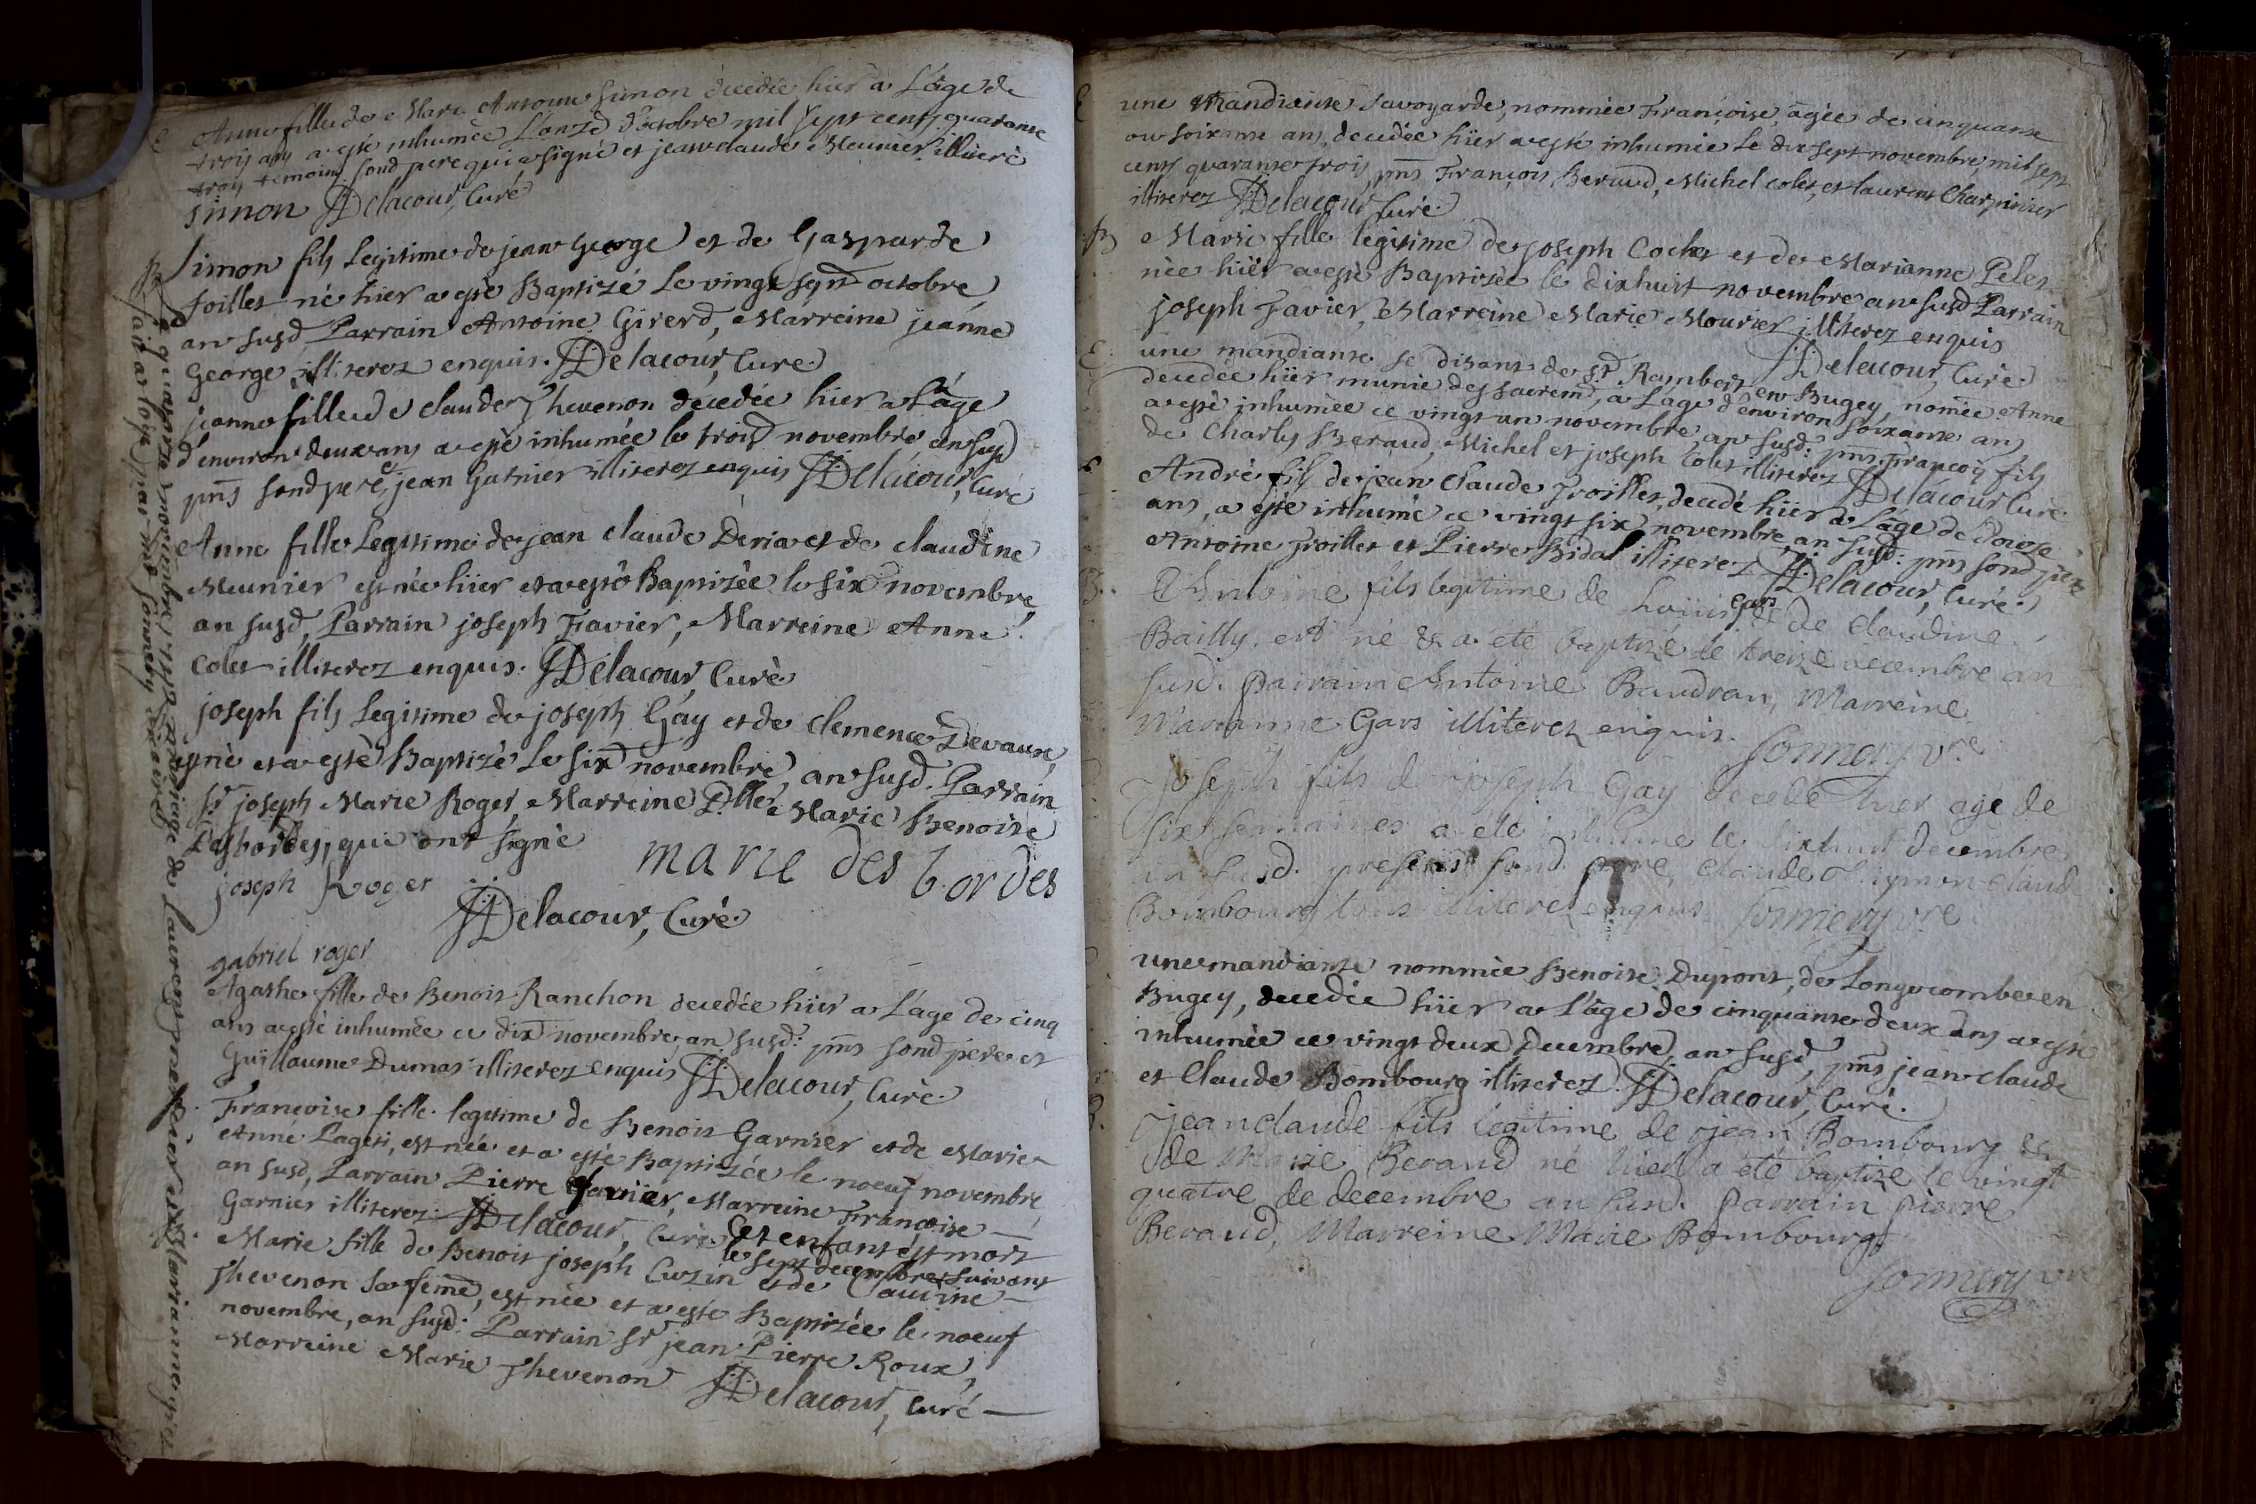 Anne fille de Marc Antoine Simon decedée hier a L'age de
trois ans a esté inhumée L'onze d'octobre mil sept cents quarante
trois temoins sond pere qui a signé et jean claude Meunier illiteré
simon Delacour, Curé
Simon fils Legitime de jean George et de Gasparde
foillet né hier a esté Baptizé Le vingt sept octobre
an susd Parrain Antoine Girerd, Marreine jeanne
George illiterez enquis. Delacour, Curé
jeanne fille de claude Thevenon decedée hier a L'age
d'environ deux ans a esté inhumée le trois novembre an susd
pnts sond pere, jean Garnier illiterez enquis Delacour, Curé
Anne fille Legitime de jean claude Deria et de claudine
Meunier est née hier et a esté Baptizée le six novembre
an susd, Parrain joseph Favier, Marreine Anne
Colet illiterez enquis. Delacour, Curé
joseph fils Legitime de joseph Gay et de Clemence Devaux
est né et a esté Baptizé Le six novembre, an susd. Parrain
Sr joseph Marie Roger, Marreine Dlle Marie Benoite
Desbordes, qui ont signé
joseph Roger marie des bordes
Delacour, Curé
gabriel roger
Agathe fille de Benoit Ranchon decedée hier a L'age de cinq
ans a esté inhumée ce dix novembre, an susd: pnts sond pere et
Guillaume Dumas illiterez enquis Delacour, Curé
Françoise fille legitime de Benoit Garnier et de Marie
Anne Pageti, est née et a esté Baptizée le noeuf novembre
an susd, Parrain Pierre Garnier, Marreine Françoise
Garnier illiterez. Delacour, Curé Cet enfant est mort
le sept decembre suivant
Marie fille de Benoit joseph Cuzin et de Claudine
Thevenon sa feme, est née et a esté Baptizée le noeuf
novembre, an susd: Parrain Sr jean Pierre Roux,
Marreine Marie Thevenon Delacour, Curé
Le quatorze novembre 1743 mariage de Laurent et Marianne
fait a par nd Sonnery vicaire
une Mandiante savoyarde, nommée Françoise, agée de cinquante
ou soixante ans, decedée hier a esté inhumée Le dix sept novembre, mil sept
cents quarante trois, pnts François Beraud, Michel colet, et laurent Charpinier
illiterez Delacour, Curé
Marie fille legitime de joseph Cochet et de Marianne Pelet
née hier a esté Baptizée le dixhuit novembre an susd Parrain
joseph Favier, Marreine Marie Mourier illiterez enquis
Delacour, Curé
une mandiante se disant de St Rambert en Bugey, nomée Anne
decedée hier munie des sacrem, a L'age d'environ soixante ans
a esté inhumée ce vingt un novembre, an susd: pnts François fils
de Charles Beraud, Michel et joseph Colet illiterez Delacour Curé
André fils de jean Claude Troillet, decedé hier a L'age de douze
ans, a esté inhumé ce vingt six novembre an susd: pnts sond pere
Antoine Troillet et Pierre Bidal illiterez Delacour, Curé
Anthoine fils legitime de Loüis gars et de claudine
Bailly. est né & a eté baptizé le treize decembre an
susd. parrain Antoine Baudran, Marreine
Marianne Gars illiterez enquis. Sonnery vre
Joseph fils de joseph Gay decedé hier age de
six semaines a eté inhumé le dixhuit decembre
an susd. presens sond. pere, claude Simon claude
Bombourg tous illiterez enquis Sonnery vre
une mandiante nommée Benoite Dupont, de Longecombe en
Bugey, decedée hier a L'age de cinquante deux ans a esté
inhumée ce vingt deux Decembre, an susd, pnts jean claude
et Claude Bombourg illiterez. Delacour, Curé.
jean claude fils legitime de jean Bombourg &
de Marie Beraud né hier a eté baptize le vingt
quatre de decembre an susd. parrain pierre
Beraud, Marreine Marie Bombourg
Sonnery vre